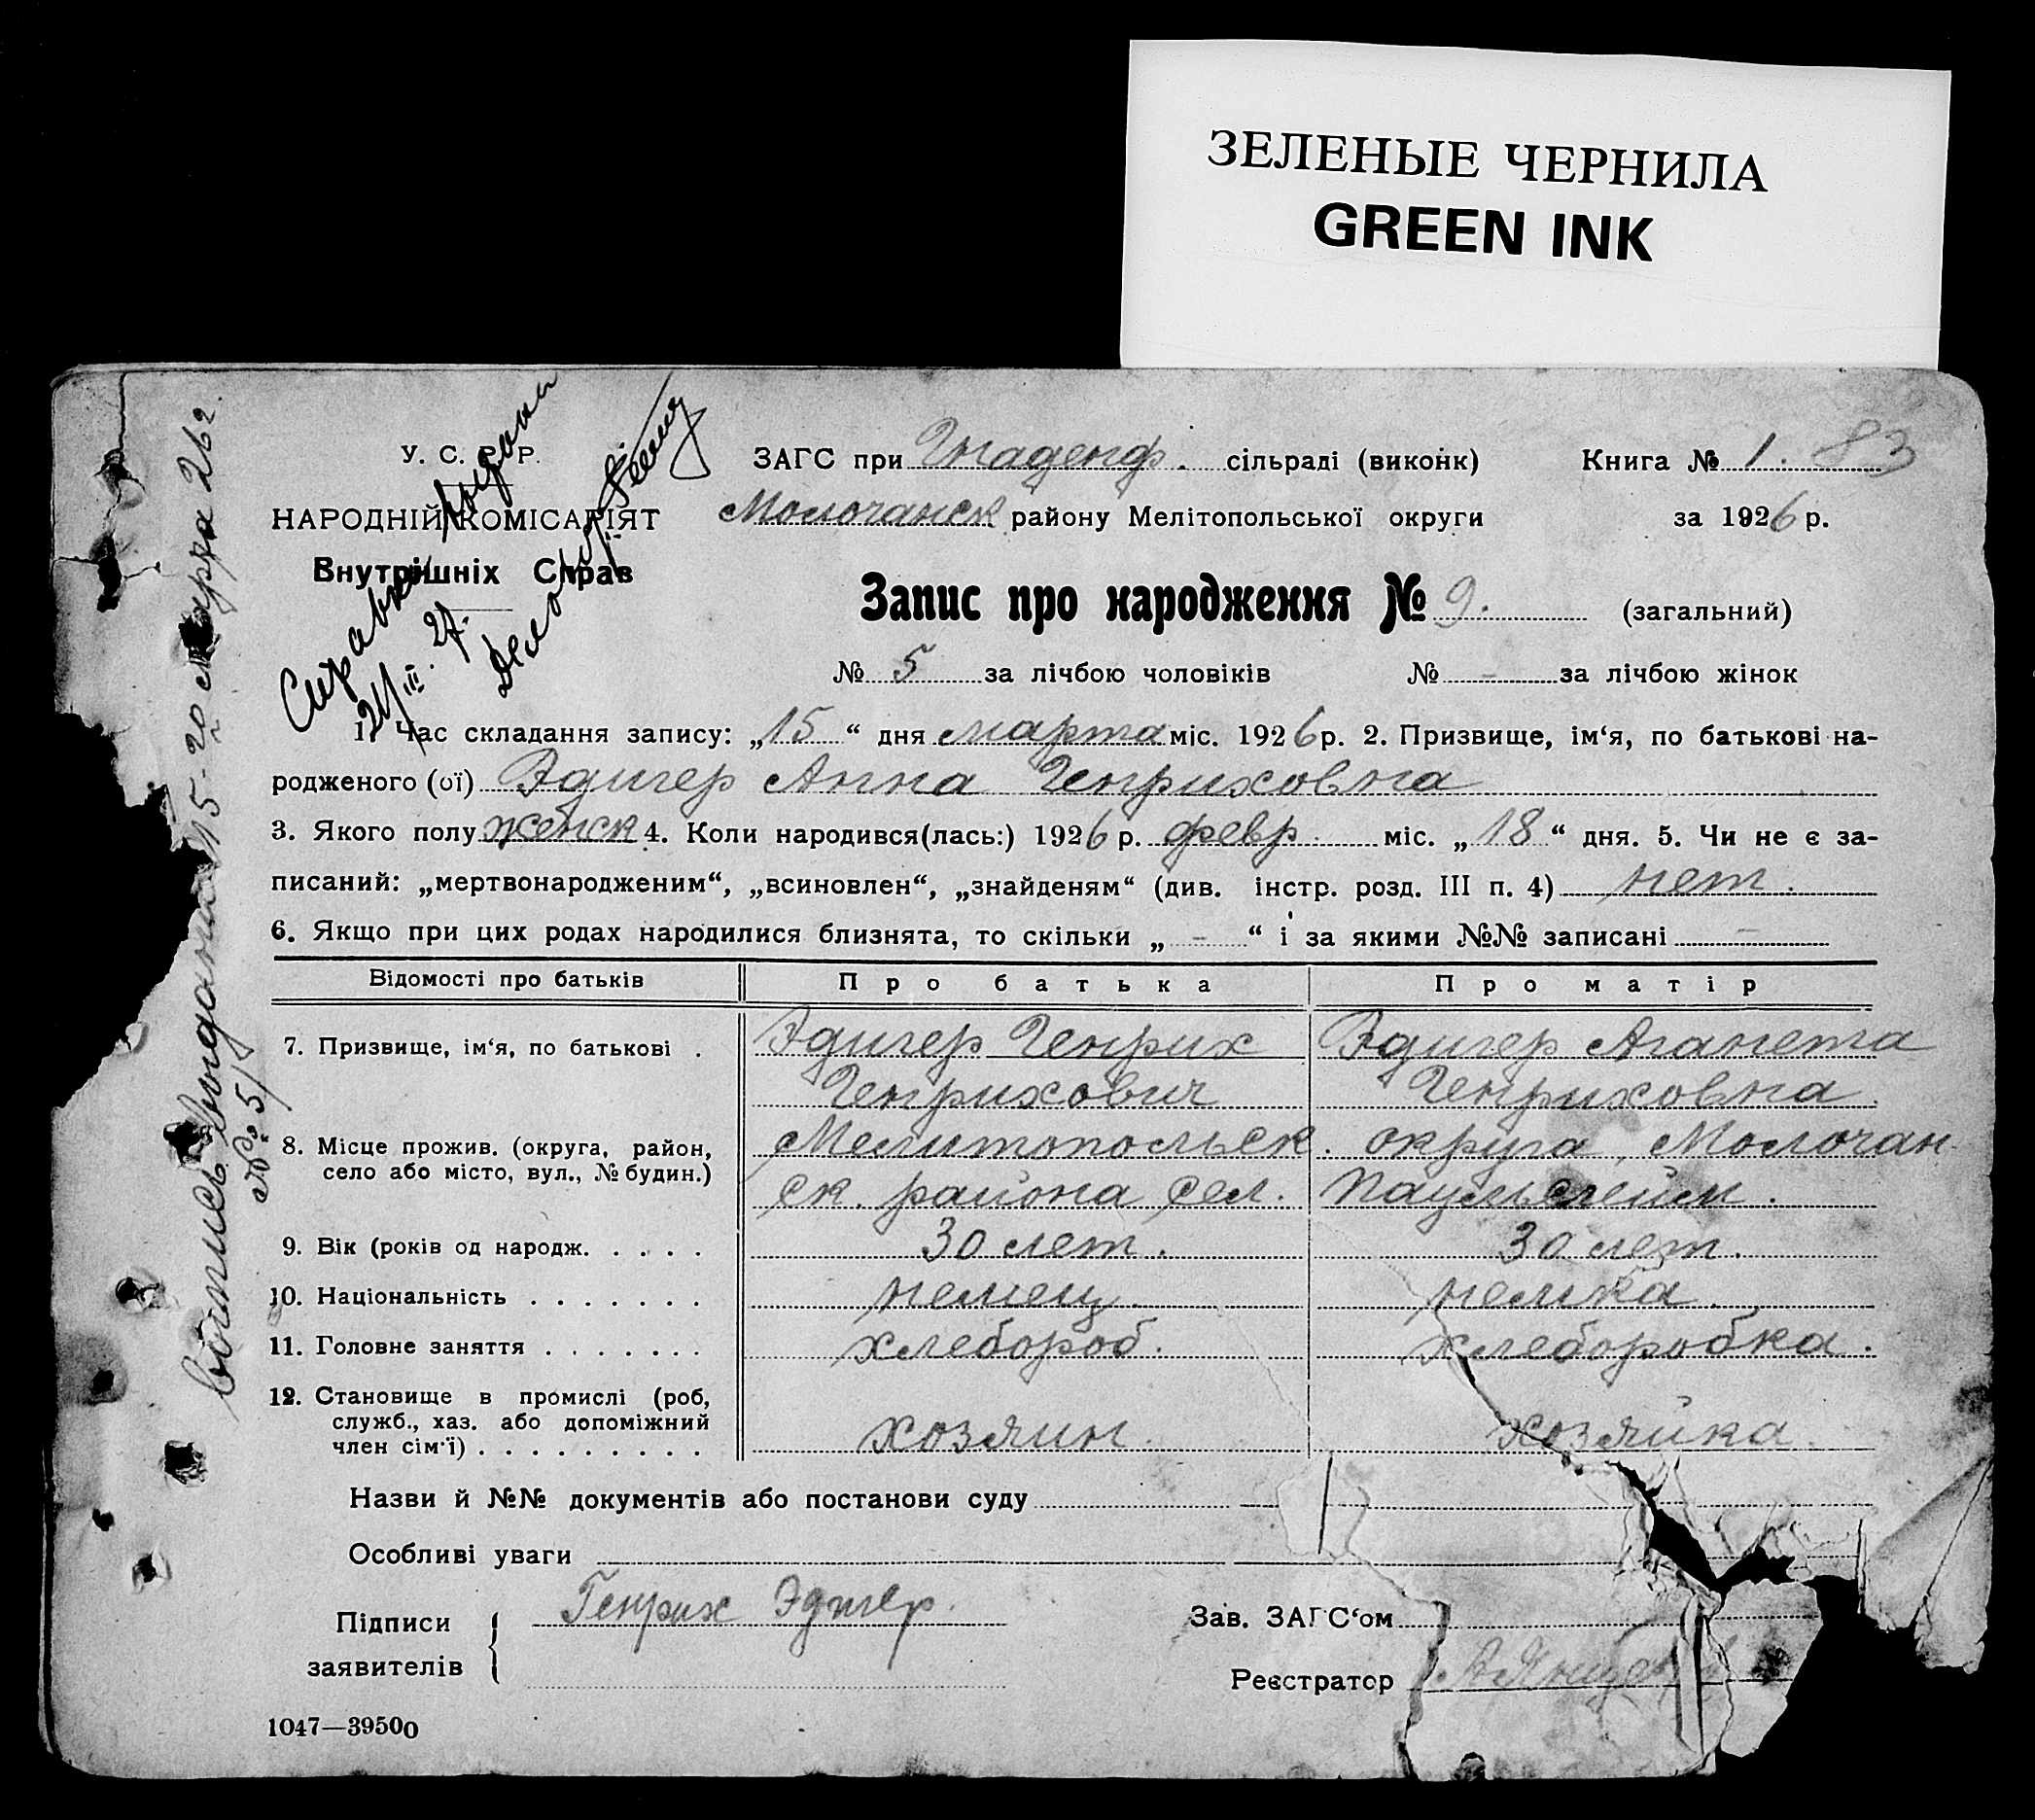 ЗЕЛЕНЫЕ ЧЕРНИЛА
GREEN INK
У. С. Р. Р.
НАРОДНІЙ КОМІСАРІЯТ
Внутрішніх Справ
Справка выдана
24/III. 27.
ЗАГС при Гнаденф. сільраді (виконк) Книга № 1. 83
Молочанск району Мелітопольської округи за 1926 р.
Запис про народження № 9. (загальний)
№ 5 за лічбою чоловіків № - за лічбою жінок
1. Час складання запису: „15“ дня марта міс. 1926 р. 2. Призвище, ім‘я, по батькові на-
родженого (ої) Эдигер Анна Генриховна
3. Якого полу женск 4. Коли народився(лась:) 1926 р. февр. міс. „18“ дня. 5. Чи не є за-
писаний: „мертвонародженим“, „всиновлен“, „знайденям“ (див. інстр. розд. III п. 4) нет.
6. Якщо при цих родах народилися близнята, то скільки „-“ і за якими №№ записані -
Відомості про батьків Про батька Про матір
7. Призвище, ім‘я, по батькові . Эдигер Генрих Эдигер Аганета
Генрихович Генриховна.
8. Місце прожив. (округа, район, село або місто, вул., № будин.) Мелитопольск. округа, Молочан-
ск. района сел. Паульсгейм.
9. Вік (років од народж. . . . . 30 лет. 30 лет.
10. Національність . . . . . . . немец. немка.
11. Головне заняття . . . . . . . хлебороб. хлеборобка.
12. Становище в промислі (роб,
служб., хаз. або допоміжний
член сім‘ї) . . . . . . . . . хозяин. хозяйка.
Назви й №№ документів або постанови суду
Особливі уваги
Підписи заявителів Генрих Эдигер.
Зав. ЗАГС‘ом
Реєстратор
1047—39500
выдана 15-го марта 26 г.
№ 5/